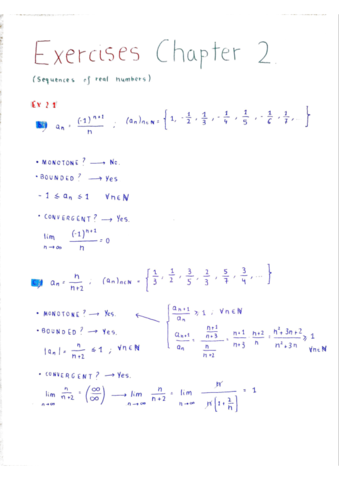 Exercises Chapter 2.
(Sequences of real numbers)
Ex 2.1
a_n = (-1)^{n+1}/n , (a_n)_{n∈N} = {1, -1/2, 1/3, -1/4, 1/5, -1/6, 1/7, ...}
• MONOTONE? → No.
• BOUNDED? → Yes
-1 ≤ a_n ≤ 1 ∀n∈N
• CONVERGENT? → Yes.
lim_{n→∞} (-1)^{n+1}/n = 0
a_n = n/(n+2) , (a_n)_{n∈N} = {1/3, 1/2, 3/5, 2/3, 5/7, 3/4, ...}
• MONOTONE? → Yes. a_{n+1}/a_n ≥ 1 ; ∀n∈N
• BOUNDED? → Yes.
|a_n| = n/(n+2) ≤ 1 ; ∀n∈N
a_{n+1}/a_n = ((n+1)/(n+3))/(n/(n+2)) = (n+1)/(n+3) · (n+2)/n = (n²+3n+2)/(n²+3n) ≥ 1 ∀n∈N
• CONVERGENT? → Yes.
lim_{n→∞} n/(n+2) = (∞/∞) → lim_{n→∞} n/(n+2) = lim_{n→∞} n/(n[1+2/n]) = 1